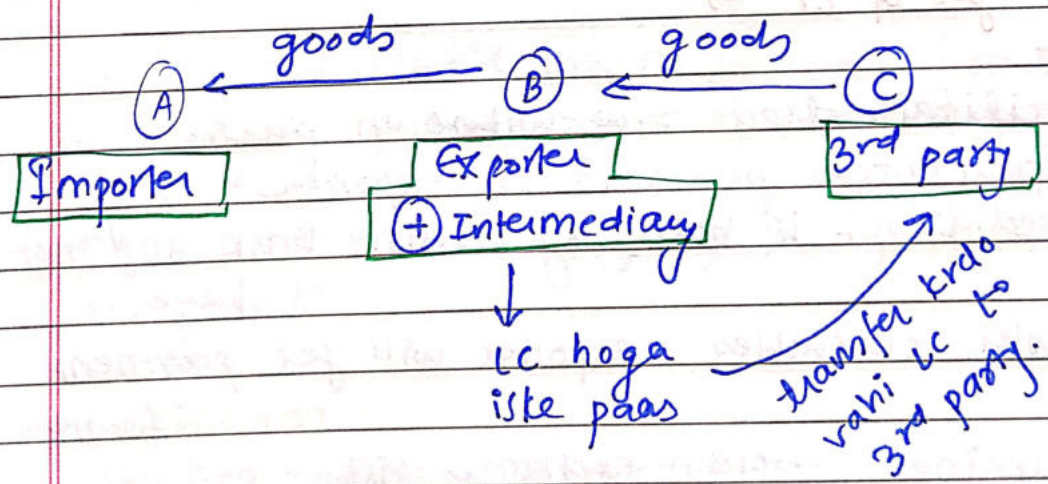 goods goods
A B C
Importer Exporter 3rd party
+ Intermediary
LC hoga
iske paas
transfer krdo
vahi LC to
3rd party